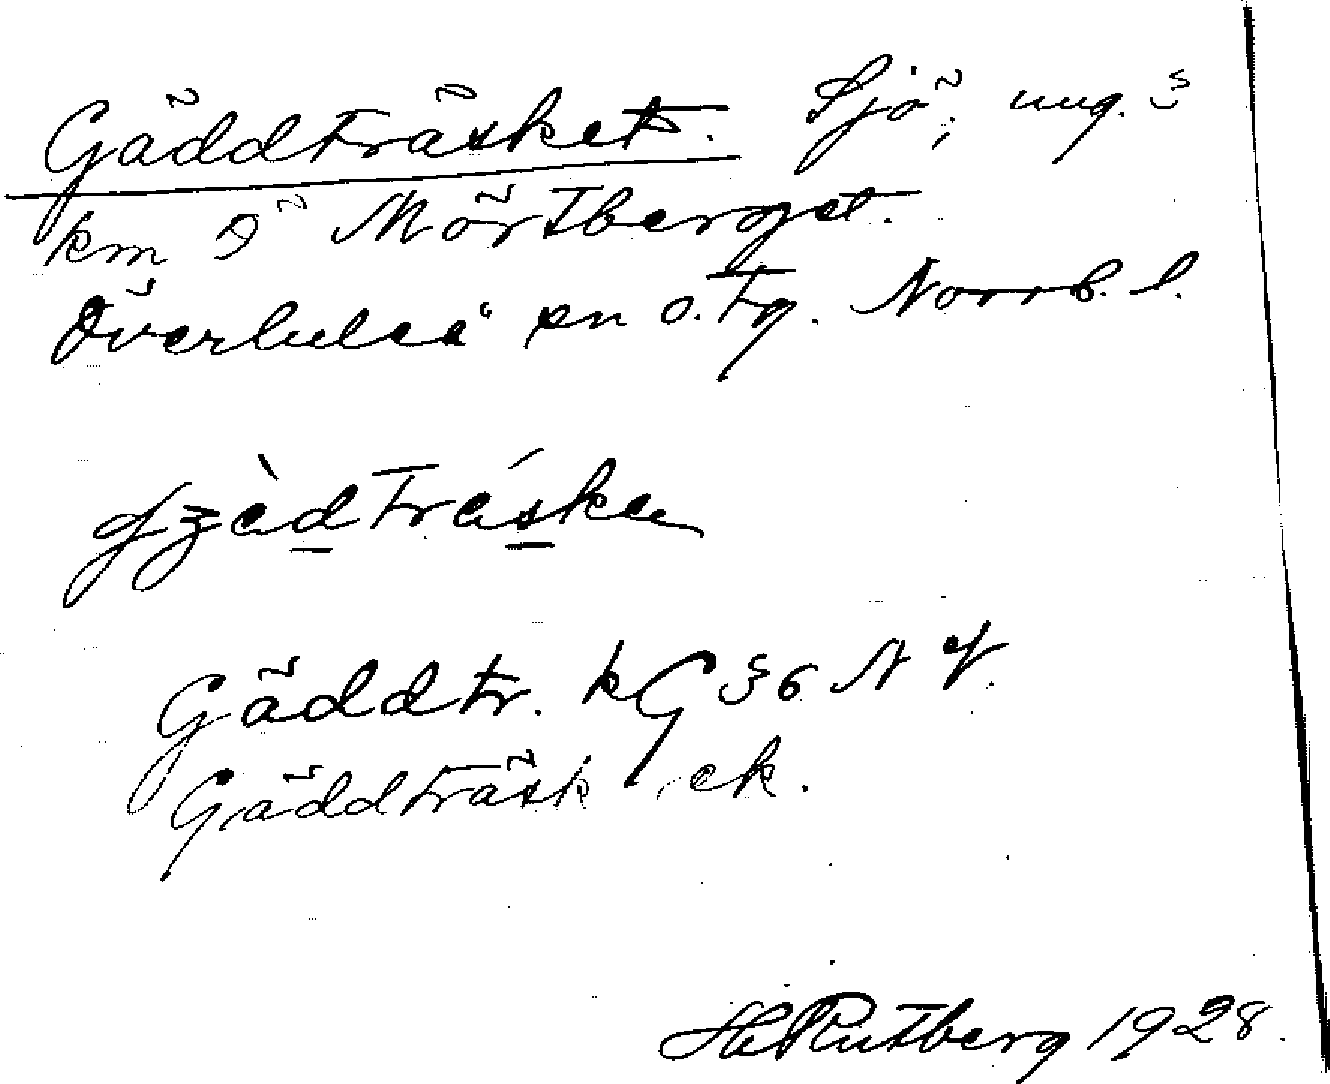 Gäddträsket. Sjö, ung. 3
km Ö Mörtberget.
Överluleå sn o. tg. Norrb. l.
Gäddtr. kG 36 NV.
Gäddträsk ek.
Hl Rutberg 1928.